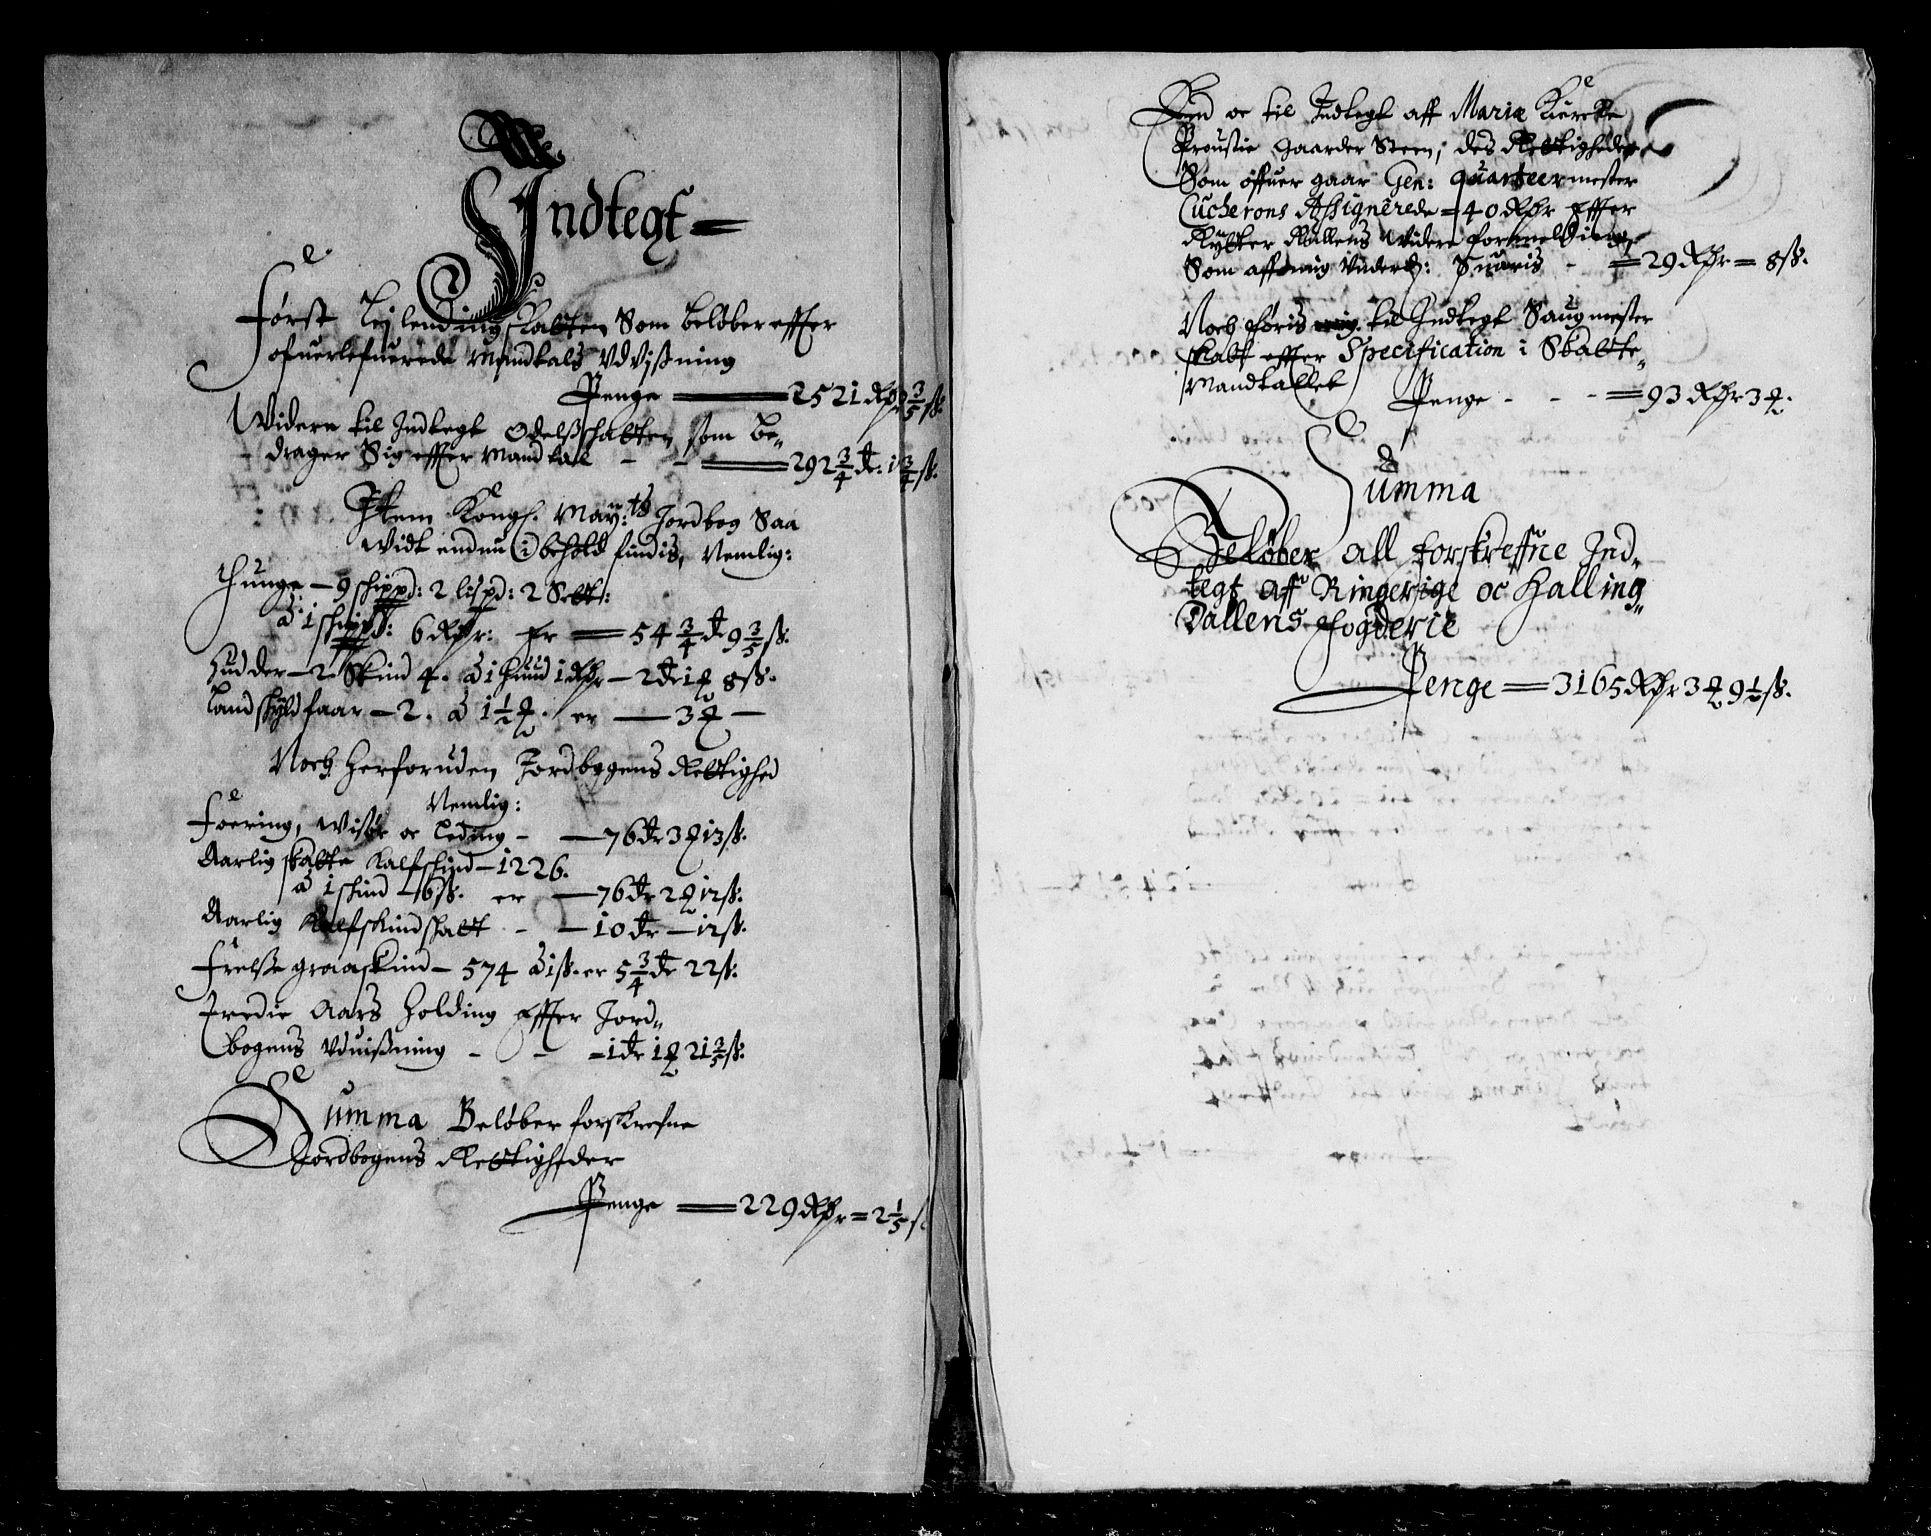 Indtegt
Først Leilendingskatten Som beløber effter
ofuerlefuerede Mandtals Vdvißning
Penge 2521 Rdr 3/5 ß.
Widere til Indtegt Odelßschatten som be-
drager Sig effter Mandtall - - 292 3/4 dr: 1 3/4 ß.
Item Kongl. May:ts Jordbog Saa
widt endnu i behold findis, Nemlig:
Thunge: - 9 schippd: 2 lispd: 2 Sett:
à 1 schippd: 6 Rdr: Er 54 3/4 dr 9 3/5 ß.
Hudder - 2. Skind 4. à 1 huud 1 Rdr - 2 dr 1 ꝗ 8 ß.
Landskyld faar - 2. à 1 1/2 ꝗ. er - 3 ꝗ -
Noch herforuden Jordbogens Rettighed
Nemlig:
Foering, Wisøre oc Leding - - 76 dr 3 ꝗ 13 ß.
Aarlig skatte Kalfschind - 1226.
à 1 schind - 6 ß. er - 76 dr 2 ꝗ 12 ß.
Aarlig Kalfskind schatt - - 10 dr - 12 ß.
Frelße graaskind - 574 à 1 ß. er 5 3/4 dr 22 ß.
Tredie Aars Holding Effter Jord-
bogens Vduißning - - - 1 dr 1 ꝗ 21 3/5 ß.
Summa Beløber forskrefne
Jordbogens Rettigheder
Penge 229 Rdr = 2 1/5 ß
End oc til Indtegt aff Mariæ Kiercke
Proustie gaarder Steen, des Rettigheder
Som offuer gaar Gen: quarteermester
Cucherons Assignerede = 40 Rdr Effter
Rytter Rullens Widere formelding
Som aff mig Vnderd: Suaris - = 29 Rdr = 8 ß.
Noch føris til Indtegt Saugmester
skatt effter Specification i Skatte-
Mandtallet
Penge - - - = 93 Rdr 3 ꝗ.
Summa
Beløber all forskreffne Ind-
tegt aff Ringerige oc Halling-
Dallens Fogderie
Penge = 3165 Rdr 3 ꝗ 9 1/2 ß.